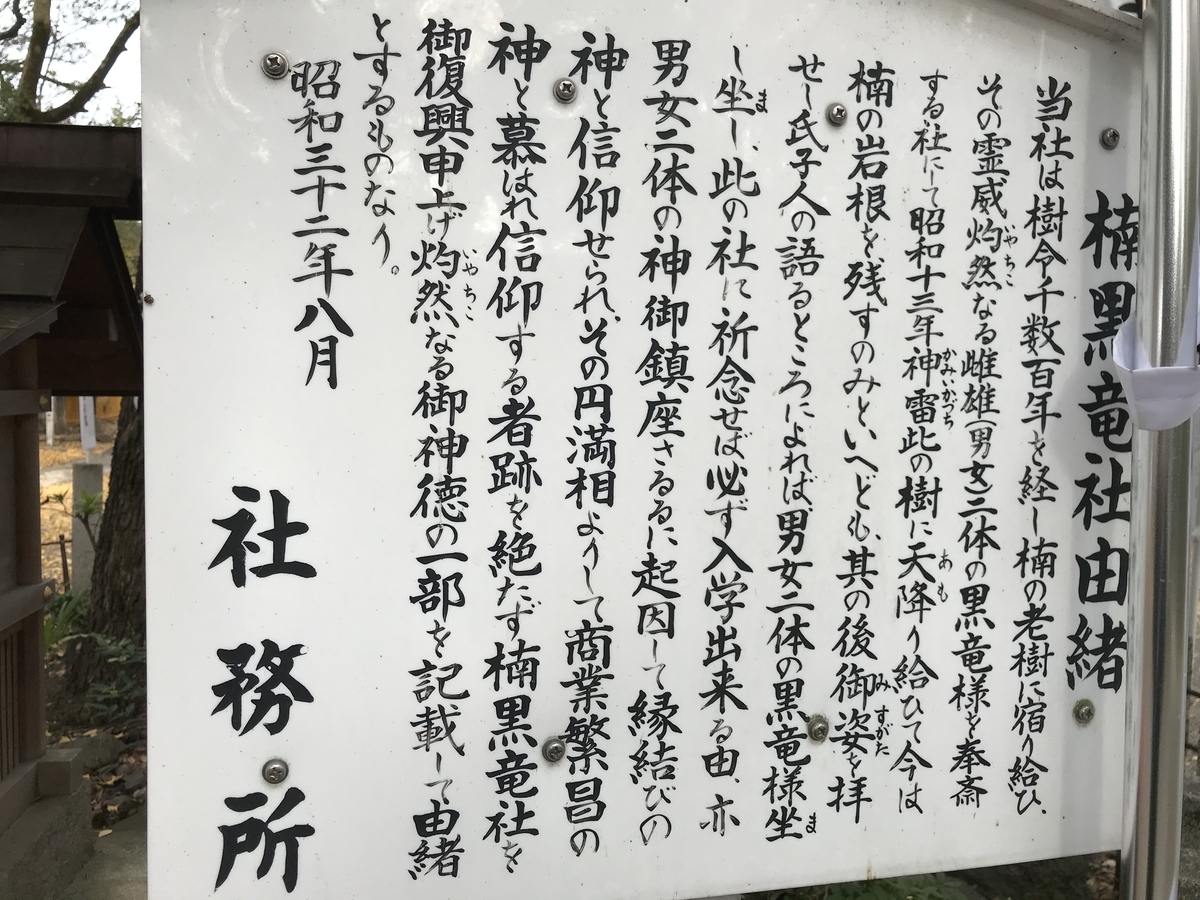 楠黒竜社由緒
当社は樹令千数百年を経し楠の老樹に宿り給ひ、
その霊威灼然なる雌雄(男女二体の黒竜様を奉斎
する社にして昭和十三年神雷此の樹に天降り給ひて今は
楠の岩根を残すのみといへども、其の後御姿を拝
せし氏子人の語るところによれば男女二体の黒竜様坐
し坐し、此の社に祈念せば必ず入学出来る由、亦
男女二体の神御鎮座さるるに起因して縁結びの
神と信仰せられ、その円満相よりして商業繁昌の
神と慕はれ信仰する者跡を絶たず楠黒竜社を
御復興申上げ灼然なる御神徳の一部を記載して由緒
とするものなり。
昭和三十二年八月
社務所